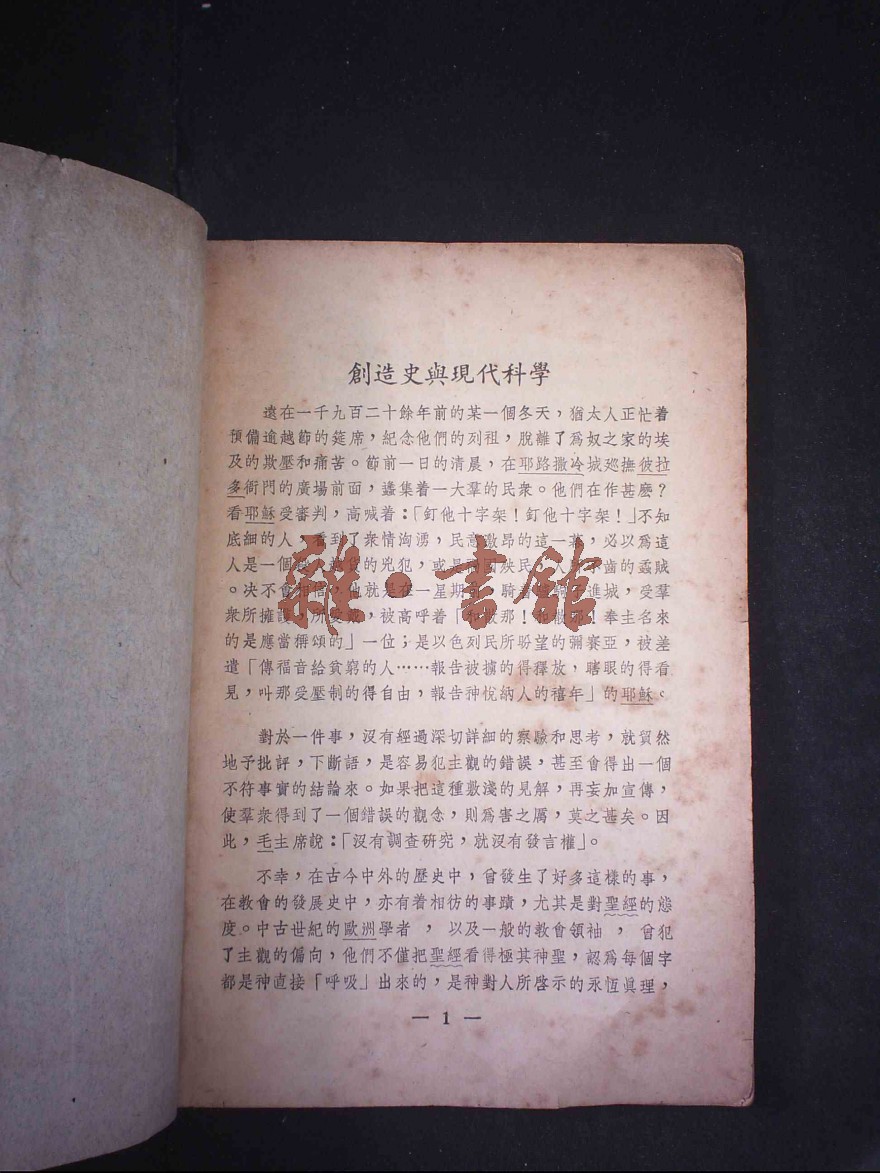 創造史與現代科學
遠在一千九百二十餘年前的某一個冬天，猶太人正忙着
預備逾越節的筵席，紀念他們的列祖，脫離了爲奴之家的埃
及的欺壓和痛苦。節前一日的清晨，在耶路撒冷城廵撫彼拉
多衙門的廣塲前面，蠭集着一大羣的民衆。他們在作甚麽？
看耶穌受審判，高喊着：「釘他十字架！釘他十字架！」不知
底細的人，看到了衆情洶湧，民意激昂的這一幕，必以爲這
人是一個 貨的兇犯，或是 國殃民， 齒的蟊賊
。决不會相信，他就是在一星期前，騎着 進城，受羣
衆所擁護，所愛戴，被高呼着「和散那！和散那！奉主名來
的是應當稱頌的」一位；是以色列民所盼望的彌賽亞，被差
遣「傳福音給貧窮的人……報告被擄的得釋放，瞎眼的得看
見，叫那受壓制的得自由，報告神悅納人的禧年」的耶穌。
對於一件事，沒有經過深切詳細的察驗和思考，就貿然
地予批評，下斷語，是容易犯主觀的錯誤，甚至會得出一個
不符事實的結論來。如果把這種敷淺的見解，再妄加宣傳，
使羣衆得到了一個錯誤的觀念，則爲害之厲，莫之甚矣。因
此，毛主席說：「沒有調查研究，就沒有發言權」。
不幸，在古今中外的歷史中，曾發生了好多這樣的事，
在敎會的發展史中，亦有着相彷的事蹟，尤其是對聖經的態
度。中古世紀的歐洲學者，以及一般的敎會領袖，曾犯
了主觀的偏向，他們不僅把聖經看得極其神聖，認爲每個字
都是神直接「呼吸」出來的，是神對人所啓示的永恆眞理，
— 1 —
雜·書館